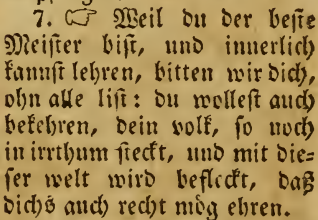 7. ☞ Weil du der beſte
Meiſter biſt, und innerlich
kannſt lehren, bitten wir dich,
ohn alle liſt: du wolleſt auch
bekehren, dein volk, ſo noch
in irrthum ſteckt, und mit die⸗
ſer welt wird befleckt, daß
dichs auch recht mög ehren.